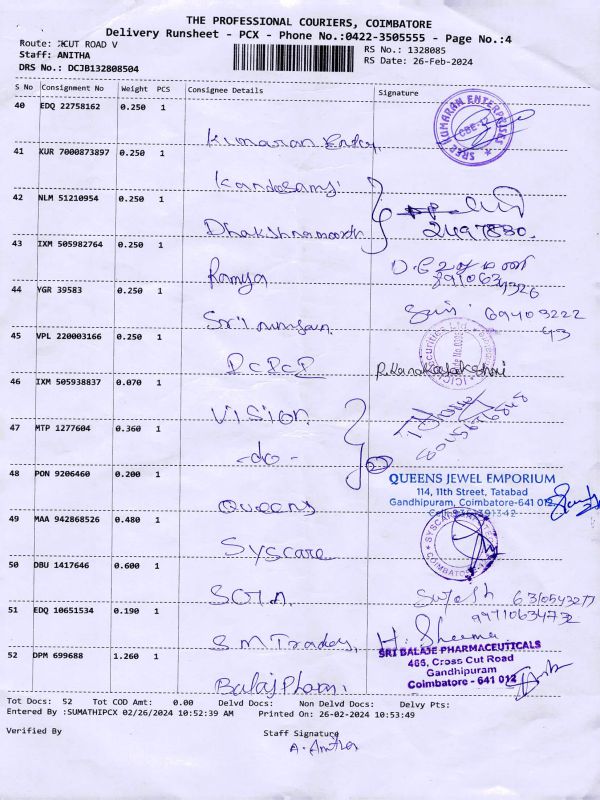 THE PROFESSIONAL COURIERS, COIMBATORE
Delivery Runsheet - PCX - Phone No.:0422-3505555 - Page No.:4
Route: XCUT ROAD V
Staff: ANITHA
DRS No.: DCJB132808504
RS No.: 1328085
RS Date: 26-Feb-2024
S No Consignment No Weight PCS Consignee Details Signature
40 EDQ 22758162 0.250 1 Kumaran
SREE KUMARAN ENTERPRISES CBE-12
41 KUR 7000873897 0.250 1 Kandasamy
42 NLM 51210954 0.250 1 Dhakshnamoorth
2497880.
43 IXM 505982764 0.250 1 Ramya
44 YGR 39583 0.250 1 Sri
45 VPL 220003166 0.250 1 PCPCP
46 IXM 505938837 0.070 1 Vision
47 MTP 1277604 0.360 1 -do-
48 PON 9206460 0.200 1 Queens
QUEENS JEWEL EMPORIUM
114, 11th Street, Tatabad
Gandhipuram, Coimbatore-641 012
49 MAA 942868526 0.480 1 Syscare
50 DBU 1417646 0.600 1
51 EDQ 10651534 0.190 1 S.M Traders, H. Sheema
SRI BALAJE PHARMACEUTICALS
466, Cross Cut Road
Gandhipuram
Coimbatore - 641 012
52 DPM 699688 1.260 1 Balaj Pharm.
Tot Docs: 52 Tot COD Amt: 0.00 Delvd Docs: Non Delvd Docs: Delvy Pts:
Entered By :SUMATHIPCX 02/26/2024 10:52:39 AM Printed On: 26-02-2024 10:53:49
Verified By Staff Signature
A. Anitha